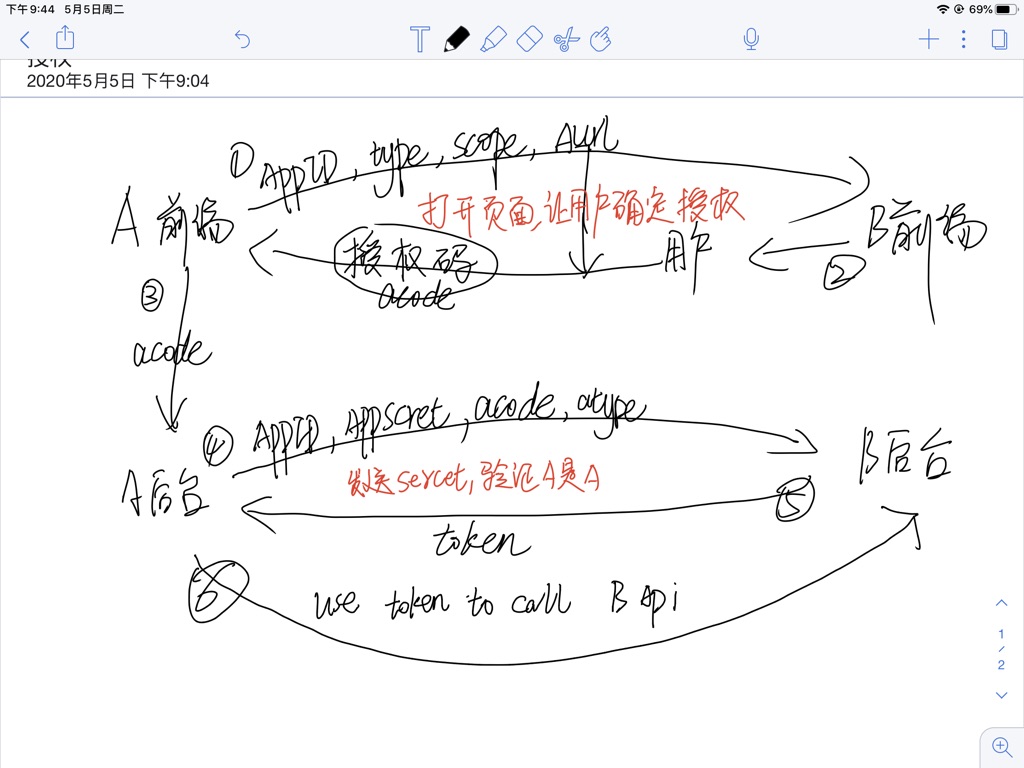 下午9:44 5月5日周二
69%
授权
2020年5月5日 下午9:04
① AppID, type, scope, Aurl
打开页面,让用户确定授权
A 前端
B前端
授权码
用户
②
acode
③
acode
④ APPID, APPscret, acode, atype
B后台
发送sercet,验证A是A
A后台
⑤
token
⑥
use token to call B Api
1
/
2